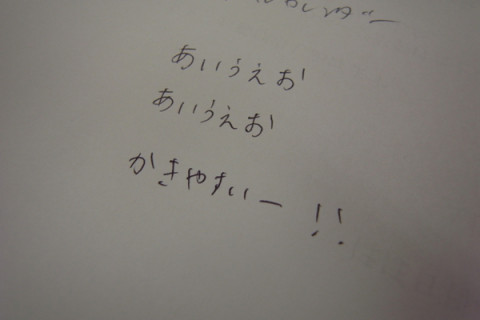 あいうえお
あいうえお
かきやすいー!!